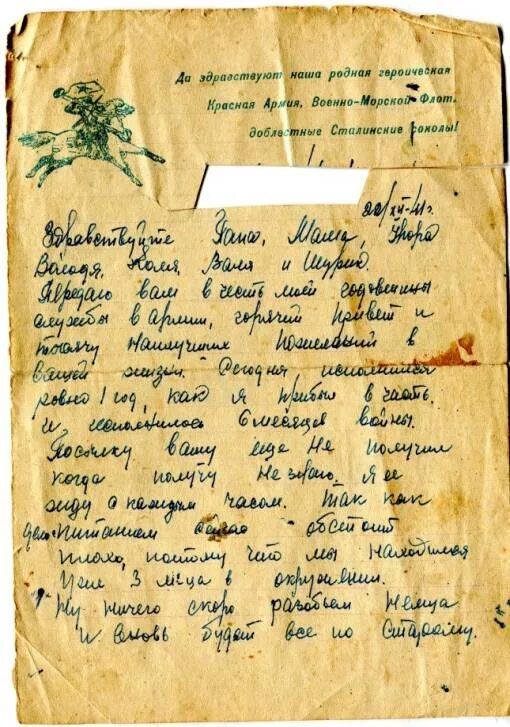 Да здравствуют наша родная героическая
Красная Армия, Военно-Морской Флот,
доблестные Сталинские соколы!
22/XII-41г.
Здравствуйте Папа, Мама, Жора
Володя, Коля, Валя и Шурик.
Передаю вам в честь моей годовщины
службы в Армии, горячий привет и
тысячу наилучших пожеланий в
вашей жизни. Сегодня, исполнился
ровно 1 год, как я прибыл в часть.
и исполнилось 6 месяцев войны.
Посылку вашу еще не получил
когда получу не знаю, я ее
жду с каждым часом. Так как
дело питанием сейчас обстоит
плохо, поэтому что мы находимся
уже 3 м-ца в окружении.
Ну ничего скоро разобьем немца
и вновь будет все по старому.